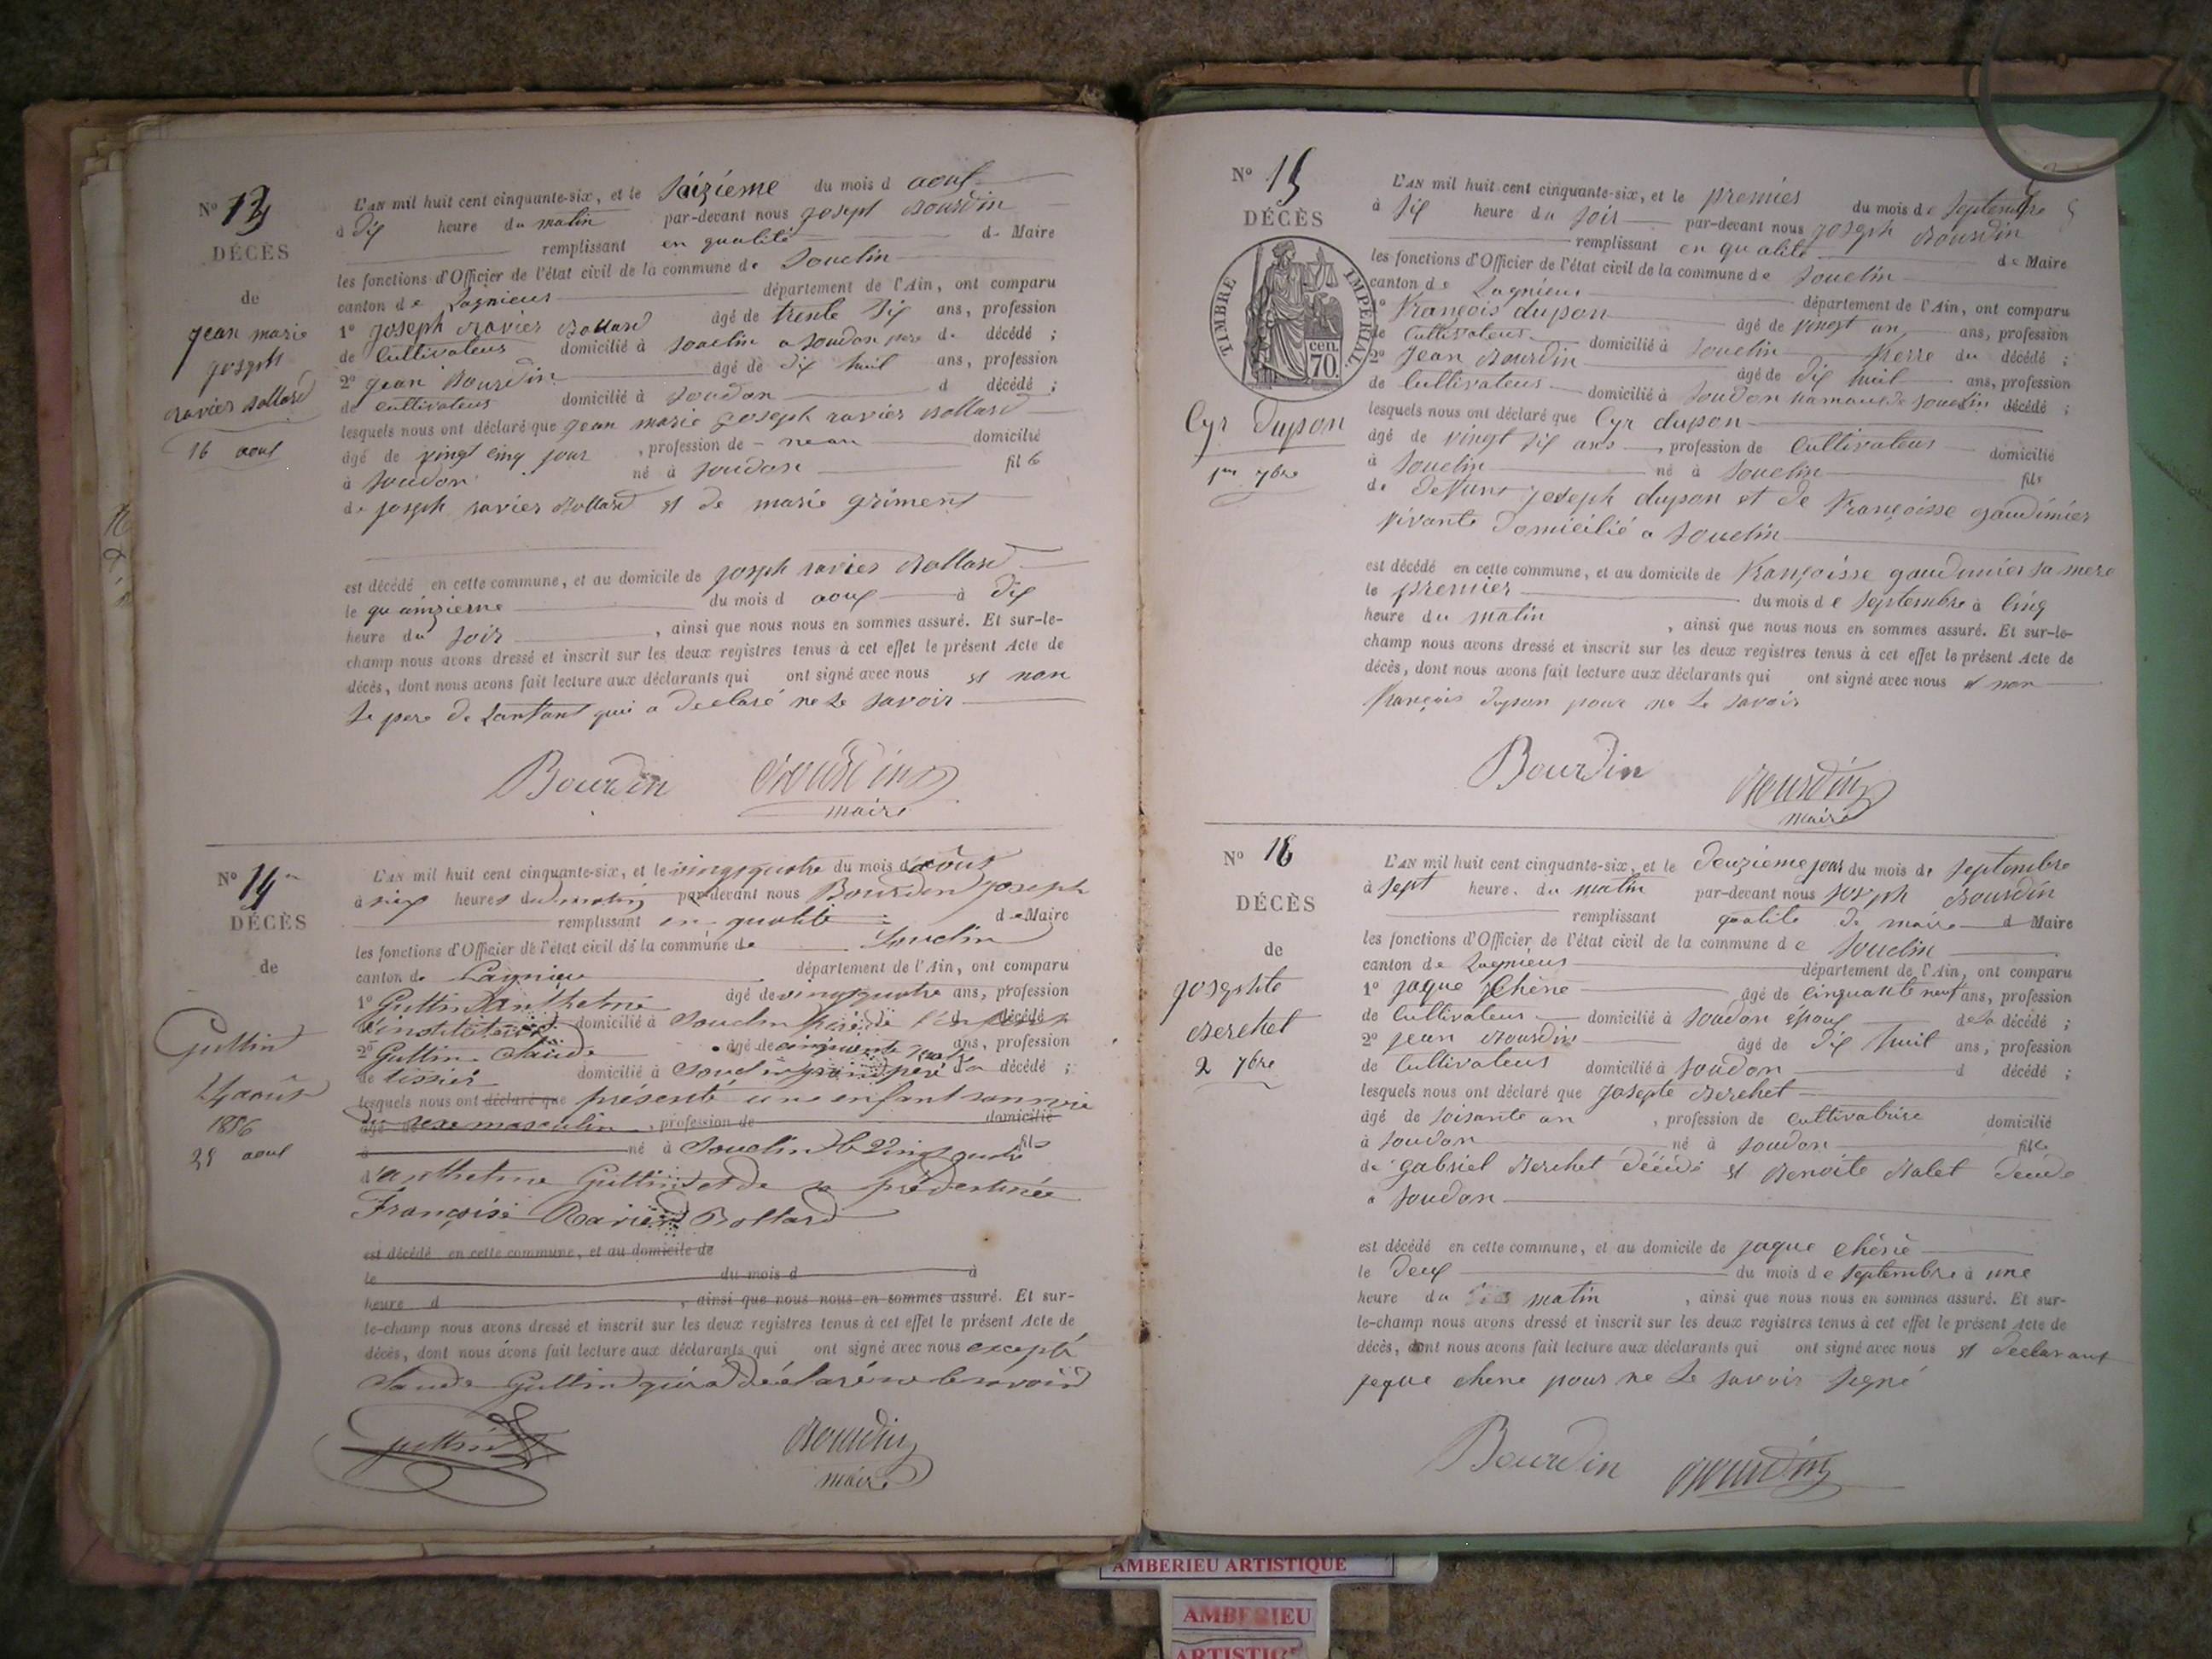 Nº 13
DÉCÈS
de
jean marie
joseph
ravier Bollard
16 aout
L'AN mil huit cent cinquante-six, et le saizieme du mois d aout
à dix heure du matin par-devant nous joseph Bourdin
remplissant en qualité de Maire
les fonctions d'Officier de l'état civil de la commune de Souclin
canton de Lagnieus département de l'Ain, ont comparu
1º joseph ravier Bollard âgé de trente six ans, profession
de Cultivateus domicilié à Souclin a Soudon pere de décédé ;
2º jean Bourdin âgé de dix huit ans, profession
de Cultivateus domicilié à Soudon d décédé ;
lesquels nous ont déclaré que jean marie joseph ravier Bollard
âgé de vingt cinq jour , profession de - nean domicilié
à Soudon né à Soudon fil
de joseph ravier Bollard et de marie griment
est décédé en cette commune, et au domicile de joseph ravier Bollard
le quainzieme du mois d aout à dix
heure du soir , ainsi que nous nous en sommes assuré. Et sur-le-
champ nous avons dressé et inscrit sur les deux registres tenus à cet effet le présent Acte de
décès, dont nous avons fait lecture aux déclarants qui ont signé avec nous et non
le pere de Lanfant qui a declaré ne le savoir
Bourdin Bourdin
maire
Nº 14
DÉCÈS
de
Guttin
24 août
1856
25 aout
L'AN mil huit cent cinquante-six, et le vingt quatre du mois d'août
à six heures du matin par-devant nous Bourdin joseph
remplissant en qualité de Maire
les fonctions d'Officier de l'état civil de la commune de Souclin
canton de Lagnieu département de l'Ain, ont comparu
1º Guttin Anthelme âgé de vingt quatre ans, profession
d'instituteur domicilié à Souclin père de l'enfant d décédé
2º Guttin Claude âgé de cinquante ans, profession
de tissier domicilié à Souclin grand père du décédé ;
lesquels nous ont déclaré que présenté une enfant sans vie
âgé de du sexe masculin , profession de domicilié
à né à Souclin le vingt quatre fils
d'anthelme Guttin et de prédestinée
Françoise Ravier Bollard
est décédé en cette commune, et au domicile de
le du mois d à
heure d , ainsi que nous nous en sommes assuré. Et sur-
le-champ nous avons dressé et inscrit sur les deux registres tenus à cet effet le présent Acte de
décès, dont nous avons fait lecture aux déclarants qui ont signé avec nous excepté
Claude Guttin qui a déclaré ne le savoir
guttin Bourdin
maire
Nº 15
DÉCÈS
TIMBRE IMPÉRIAL.
cen.
70.
Cyr Dupon
1er 7bre
L'AN mil huit cent cinquante-six, et le premier du mois de Septembre
à six heure du soir par-devant nous joseph Bourdin
remplissant en qualité de Maire
les fonctions d'Officier de l'état civil de la commune de Souclin
canton de Lagnieu département de l'Ain, ont comparu
1º François dupon âgé de vingt un ans, profession
de Cultivateus domicilié à Souclin frerre du décédé ;
2º jean Bourdin âgé de dix huit ans, profession
de Cultivateus domicilié à Soudon hamaux de Souclin décédé ;
lesquels nous ont déclaré que Cyr dupon
âgé de vingt six ans , profession de Cultivateus domicilié
à Souclin né à Souclin fils
de defunt joseph dupon et de Françoisse gaudimier
vivante domicilié a Souclin
est décédé en cette commune, et au domicile de Françoisse gaudimier sa mere
le premier du mois de Septembre à cinq
heure du matin , ainsi que nous nous en sommes assuré. Et sur-le-
champ nous avons dressé et inscrit sur les deux registres tenus à cet effet le présent Acte de
décès, dont nous avons fait lecture aux déclarants qui ont signé avec nous et non
françois dupon pour ne le savoir
Bourdin Bourdin
maire
Nº 16
DÉCÈS
de
josephte
Berchet
2 7bre
L'AN mil huit cent cinquante-six, et le deuzieme jour du mois de Septembre
à sept heure. du matin par-devant nous joseph Bourdin
remplissant qualité de maire d Maire
les fonctions d'Officier de l'état civil de la commune de Souclin
canton de Lagnieus département de l'Ain, ont comparu
1º jaque Chêne âgé de cinquante neuf ans, profession
de Cultivateus domicilié à Soudon epoux de la décédé ;
2º jean Bourdin âgé de dix huit ans, profession
de Cultivateus domicilié à Soudon d décédé ;
lesquels nous ont déclaré que josepte Berchet
âgé de soisante an , profession de Cultivatrise domicilié
à Soudon né à Soudon fille
de gabriel Berchet décidé et Benoite Balet
à Soudon
est décédé en cette commune, et au domicile de jaque chêne
le deux du mois de Septembre à une
heure du matin , ainsi que nous nous en sommes assuré. Et sur-
le-champ nous avons dressé et inscrit sur les deux registres tenus à cet effet le présent Acte de
décès, dont nous avons fait lecture aux déclarants qui ont signé avec nous et declarant
jaque chene pour ne le savoir signé
Bourdin Bourdin
AMBERIEU ARTISTIQUE
AMBERIEU
ARTISTIQUE